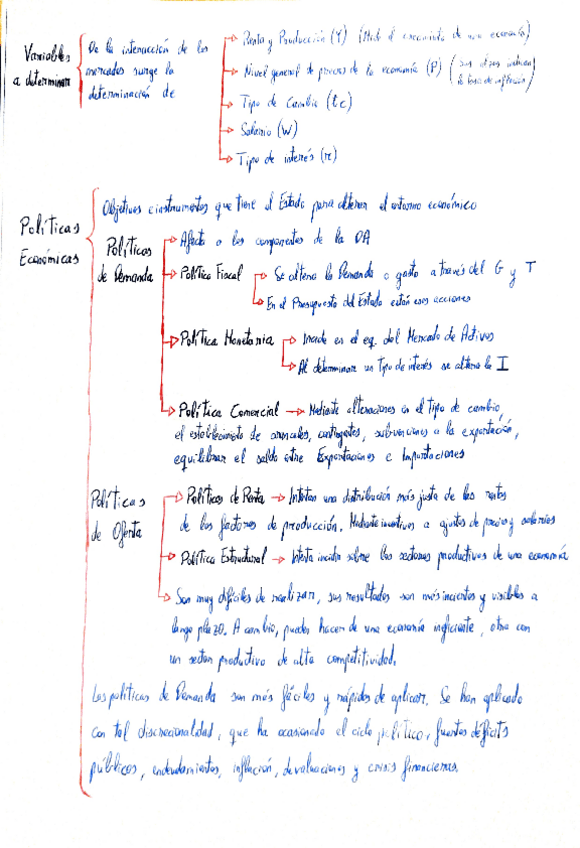 Variables a determinar
De la interacción de los mercados surge la determinación de
Renta y Producción (Y) (Mide el crecimiento de una economía)
Nivel general de precios de la economía (P) (sus alzas indican la tasa de inflación)
Tipo de Cambio (tc)
Salario (W)
Tipo de interés (r)
Políticas Económicas
Objetivos e instrumentos que tiene el Estado para alterar el entorno económico
Políticas de Demanda
Afecta a los componentes de la DA
Política Fiscal
Se altera la Demanda o gasto a través del G y T
En el Presupuesto del Estado están esas acciones
Política Monetaria
Incide en el eq. del Mercado de Activos
Al determinar un Tipo de interés se altera la I
Política Comercial → Mediante alteraciones en el tipo de cambio,
el establecimiento de aranceles, contingentes, subvenciones a la exportación,
equilibrar el saldo entre Exportaciones e Importaciones
Políticas de Oferta
Políticas de Renta → Intentan una distribución más justa de las rentas
de los factores de producción. Mediante incentivos a ajustes de precios y salarios
Política Estructural → Intenta incidir sobre los sectores productivos de una economía
Son muy difíciles de realizar, sus resultados son más inciertos y visibles a
largo plazo. A cambio, pueden hacer de una economía ineficiente, otra con
un sector productivo de alta competitividad.
Las políticas de Demanda son más fáciles y rápidas de aplicar. Se han aplicado
con tal discrecionalidad, que ha ocasionado el ciclo político, fuertes déficits
públicos, endeudamientos, inflación, devaluaciones y crisis financieras.